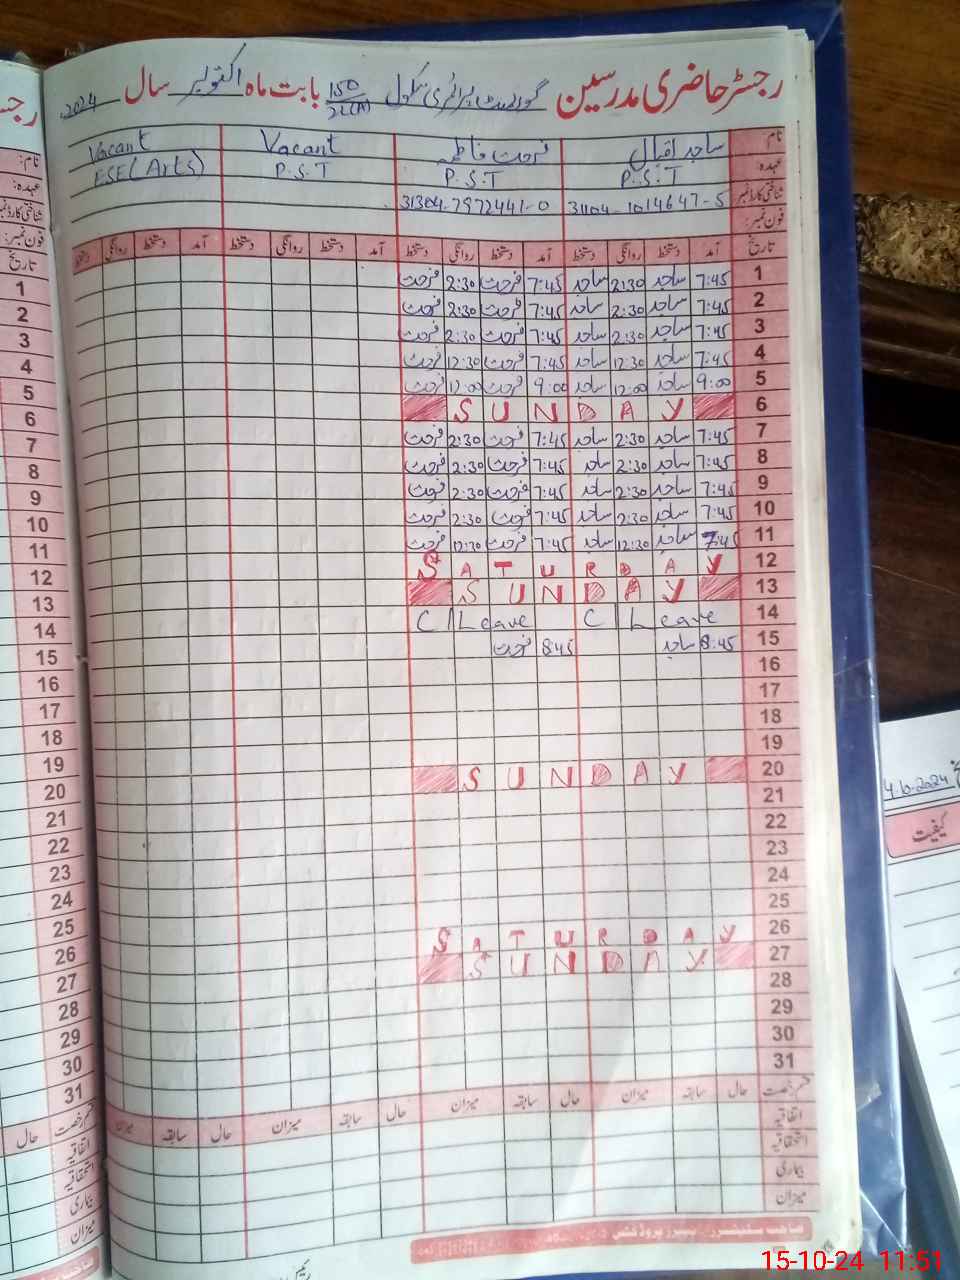 رجسٹر حاضری مدرسین گورنمنٹ پرائمری سکول 150/22(A) بابت ماہ اکتوبر سال 2024
نام ساجد اقبال فرحت فاطمہ Vacant Vacant
عہدہ P.S.T P.S.T P.S.T ESE (Arts)
شناختی کارڈ نمبر 31104-1014647-5 31304-7972441-0
فون نمبر:
تاریخ آمد دستخط روانگی دستخط آمد دستخط روانگی دستخط آمد دستخط روانگی دستخط آمد دستخط روانگی دستخط
1 7:45 ساجد 2:30 ساجد 7:45 فرحت 2:30 فرحت
2 7:45 ساجد 2:30 ساجد 7:45 فرحت 2:30 فرحت
3 7:45 ساجد 2:30 ساجد 7:45 فرحت 2:30 فرحت
4 7:45 ساجد 12:30 ساجد 7:45 فرحت 12:30 فرحت
5 9:00 ساجد 12:00 ساجد 9:00 فرحت 12:00 فرحت
6 SUNDAY
7 7:45 ساجد 2:30 ساجد 7:45 فرحت 2:30 فرحت
8 7:45 ساجد 2:30 ساجد 7:45 فرحت 2:30 فرحت
9 7:45 ساجد 2:30 ساجد 7:45 فرحت 2:30 فرحت
10 7:45 ساجد 2:30 ساجد 7:45 فرحت 2:30 فرحت
11 7:45 ساجد 12:30 ساجد 7:45 فرحت 12:30 فرحت
12 SATURDAY
13 SUNDAY
14 C/Leave C Leave
15 8:45 ساجد 8:45 فرحت
16
17
18
19
20 SUNDAY
21
22
23
24
25
26 SATURDAY
27 SUNDAY
28
29
30
31
قسم رخصت حال سابقہ میزان حال سابقہ میزان حال سابقہ میزان حال سابقہ میزان
اتفاقیہ
استحقاقیہ
بیماری
میزان
رجـ
نام:
عہدہ:
شناختی کارڈ نمبر
فون نمبر:
تاریخ
1
2
3
4
5
6
7
8
9
10
11
12
13
14
15
16
17
18
19
20
21
22
23
24
25
26
27
28
29
30
31
قسم رخصت حال
اتفاقیہ
استحقاقیہ
بیماری
میزان
کیفیت
15-10-24 11:51